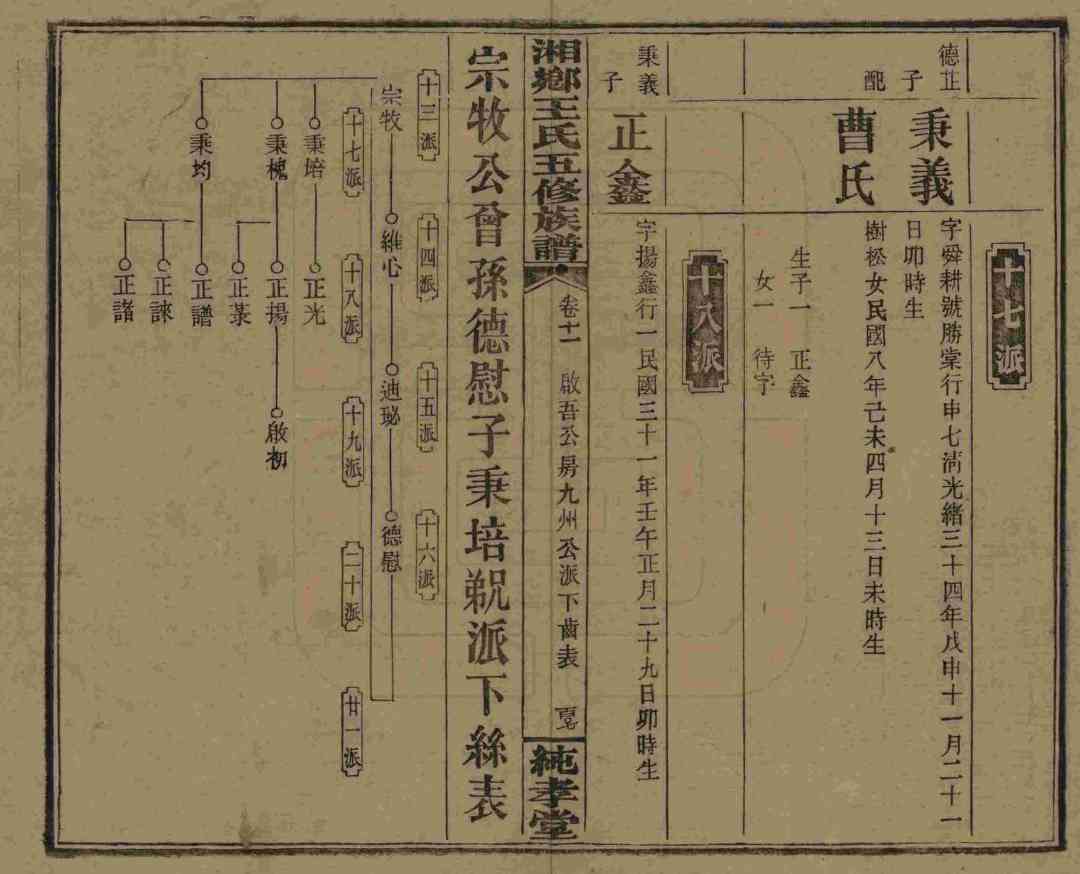 十七派
德芷子
秉義
字舜耕號勝棠行申七清光緒三十四年戊申十一月二十一
日卯時生
配
曹氏
樹松女民國八年己未四月十三日未時生
生子一　正鑫
女一　待字
十八派
秉義子
正鑫
字揚鑫行一民國三十一年壬午正月二十九日卯時生
湘鄉王氏五修族譜
卷十一　啟吾公房九州公派下齒表
純孝堂
宗牧公曾孫德慰子秉培
派下絲表
十三派　十四派　十五派　十六派
宗牧　維心　迪珌　德慰
十七派　十八派　十九派　二十派　廿一派
秉培　正光
秉槐　正揚　啟初
正菉
秉均　正譜
正諫
正諸